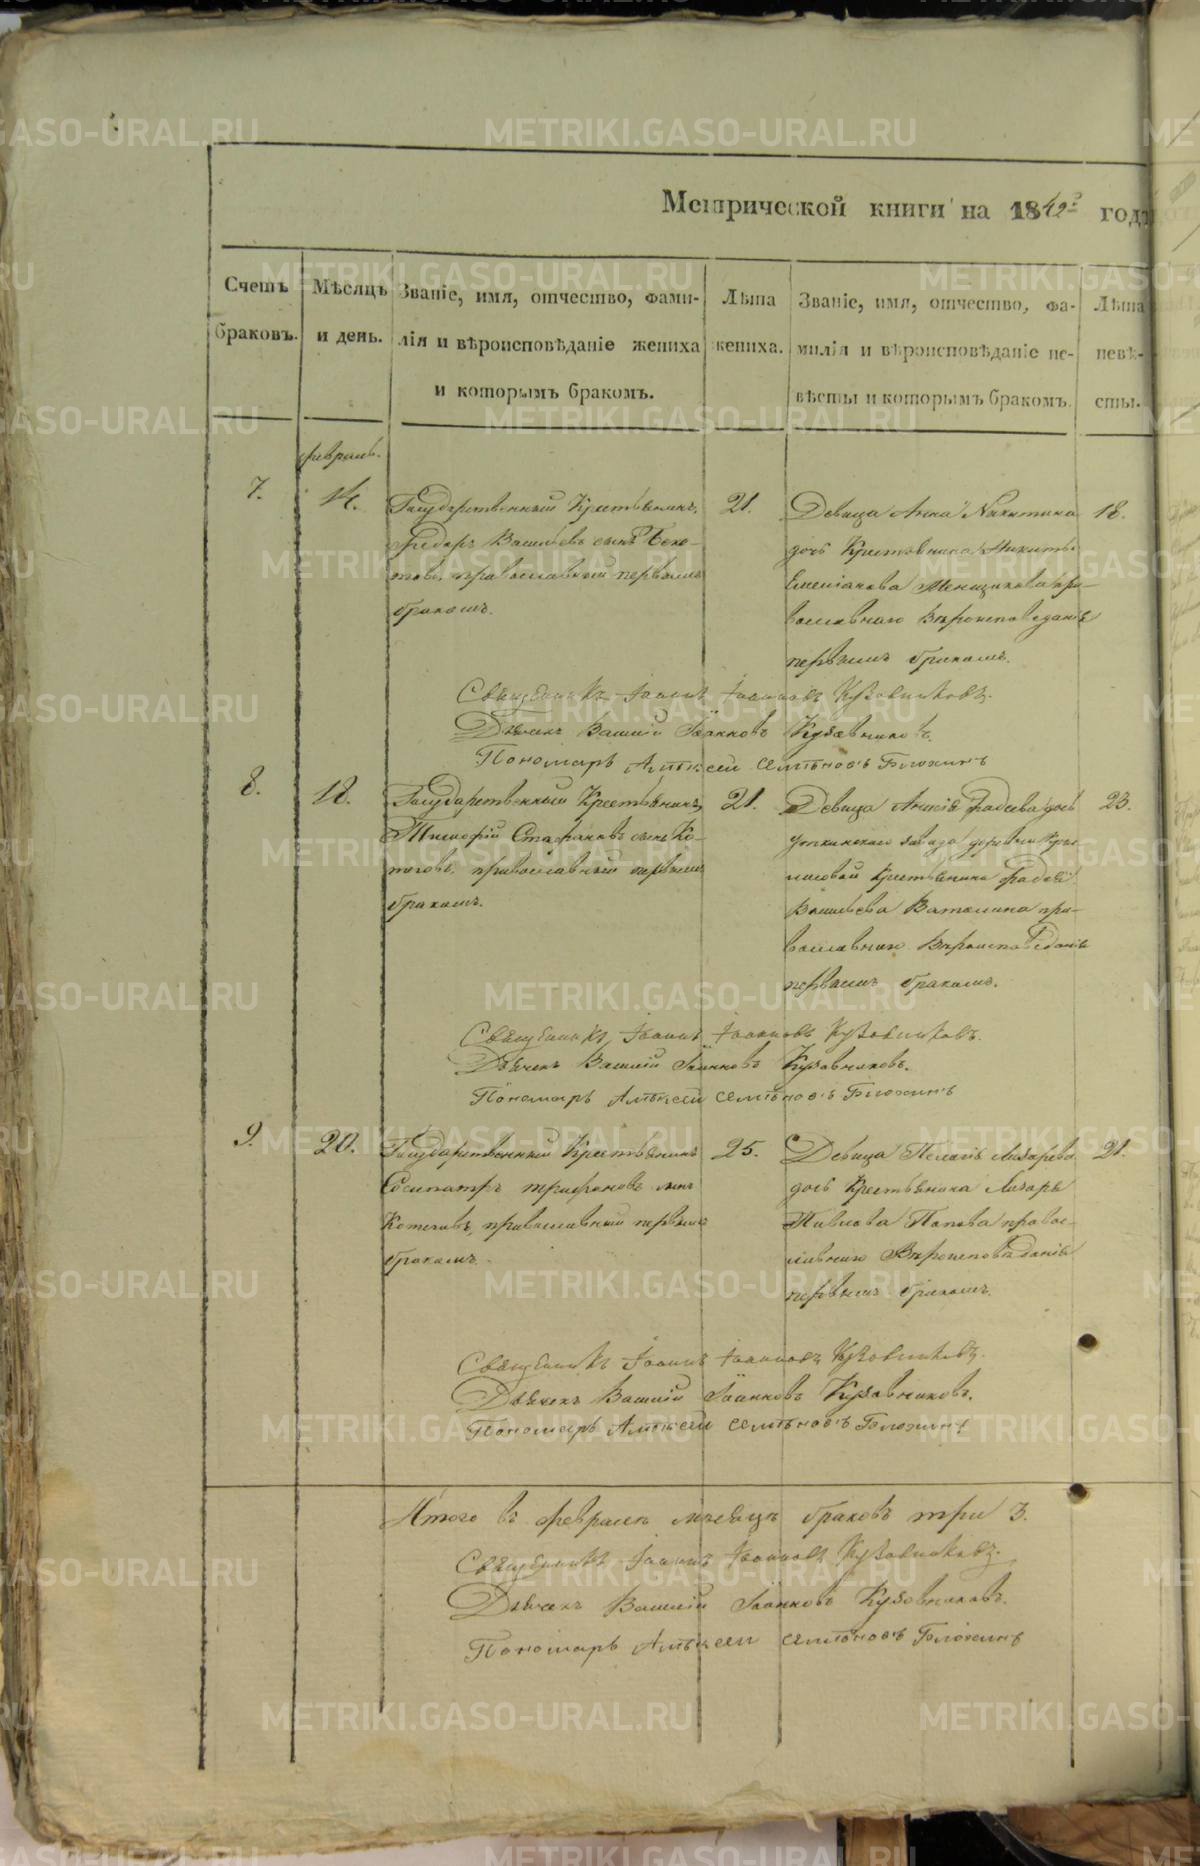 Метрической книги на 1842º годъ
Счетъ браковъ.
Мѣсяцъ и день.
Званіе, имя, отчество, фами-
лія и вѣроисповѣданіе жениха
и которымъ бракомъ.
Лѣта
жениха.
Званіе, имя, отчество, фа-
милія и вѣроисповѣданіе не-
вѣсты и которымъ бракомъ.
Лѣта
невѣ-
сты.
февраль.
7.
14.
Государственный Крестьянинъ
Федоръ Васильевъ сынъ
православный первымъ
бракомъ.
21.
Девица Анна Никитина
дочь Крестьянина Никиты
Емелianова Менщикова пра-
вославнаго Вѣроисповеданія
первымъ бракомъ.
18.
Священникъ Іоаннъ Іоанновъ Кузовниковъ.
Дьячекъ Василій Іоанновъ Кузовниковъ.
Пономарь Алѣксеи Семѣновъ
8.
18.
Государственный Крестьянинъ
Тимофій Стафановъ сынъ Ко-
тоговъ, православный первымъ
бракомъ.
21.
Девица Фадеева дочь
Уткинскаго завода деревни
Крестьянина Фадея
Васильева Ваталина пра-
вославнаго Вѣроисповеданія
первымъ бракомъ.
23.
Священникъ Іоаннъ Іоанновъ Кузовниковъ.
Дьячекъ Василій Іоанновъ Кузовниковъ.
Пономарь Алѣксеи Семѣновъ
9.
20.
Государственный Крестьянинъ
Трифоновъ сынъ
православный первымъ
бракомъ.
25.
Девица Пелагія Лазарева
дочь Крестьянина Лазаря
Павлова Попова правос-
лавнаго Вѣроисповѣданія
первымъ бракомъ.
21.
Священникъ Іоаннъ Іоанновъ Кузовниковъ.
Дьячекъ Василій Іоанновъ Кузовниковъ.
Пономарь Алѣксеи Семѣновъ
Итого въ февралѣ мѣсяцѣ браковъ три 3.
Священникъ Іоаннъ Іоанновъ Кузовниковъ.
Дьячекъ Василій Іоанновъ Кузовниковъ.
Пономарь Алѣксеи Семѣновъ
METRIKI.GASO-URAL.RU